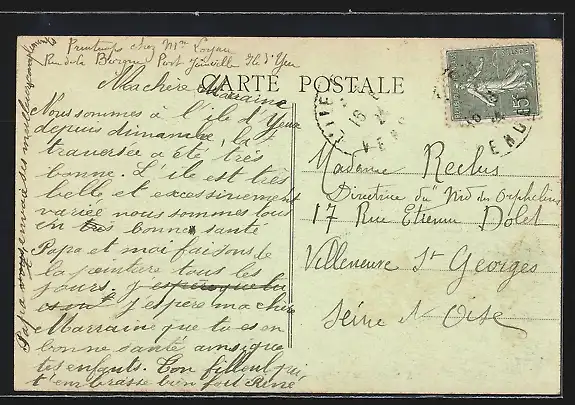 Printemps chez Mme Loyau
Rue de la Borgne Port Joinville Ile d'Yeu
CARTE POSTALE
Ma chère Marraine
Nous sommes à l'île d'Yeu
depuis dimanche, la
traversée a été très
bonne. L'île est très
belle et excessivement
variée nous sommes tous
en très bonne santé
Papa et moi faisons de
la peinture tous les
jours. j'espère que tu
es en j'espère ma chère
Marraine que tu es en
bonne santé ainsi que
tes enfants. Ton filleul qui
t'embrasse bien fort René
Papa vous envoie ses meilleurs compliments
15
Madame Reclus
Directrice du "Nid des Orphelins
17 Rue Etienne Dolet
Villeneuve St Georges
Seine et Oise